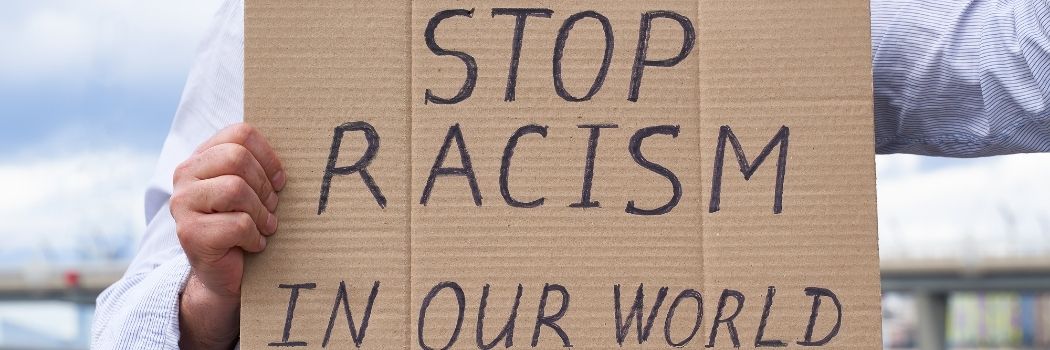 STOP
RACISM
IN OUR WORLD